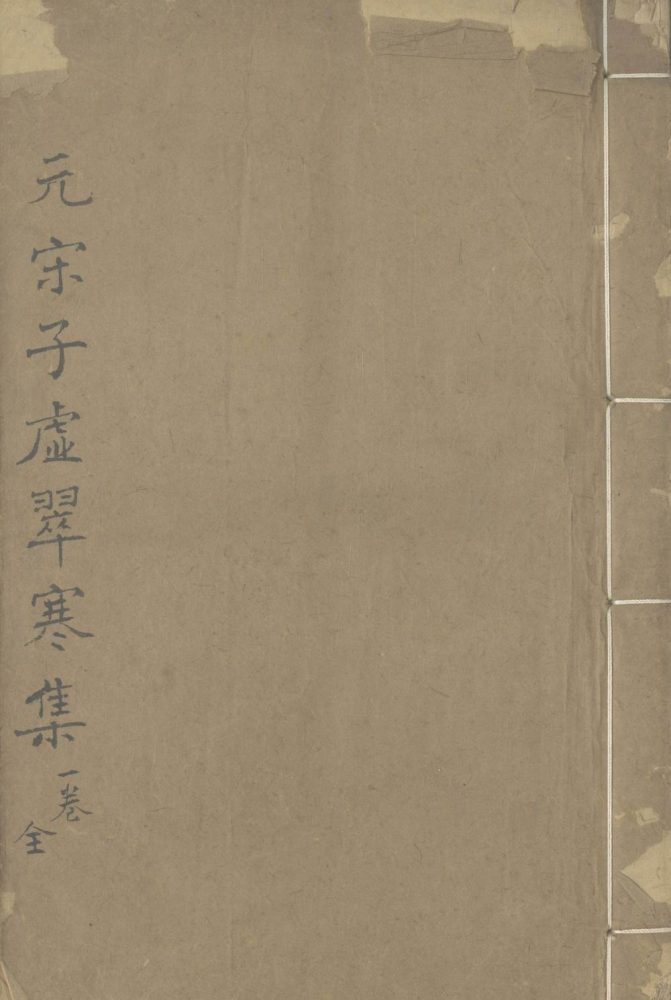 元宋子虛翠寒集
一卷
全